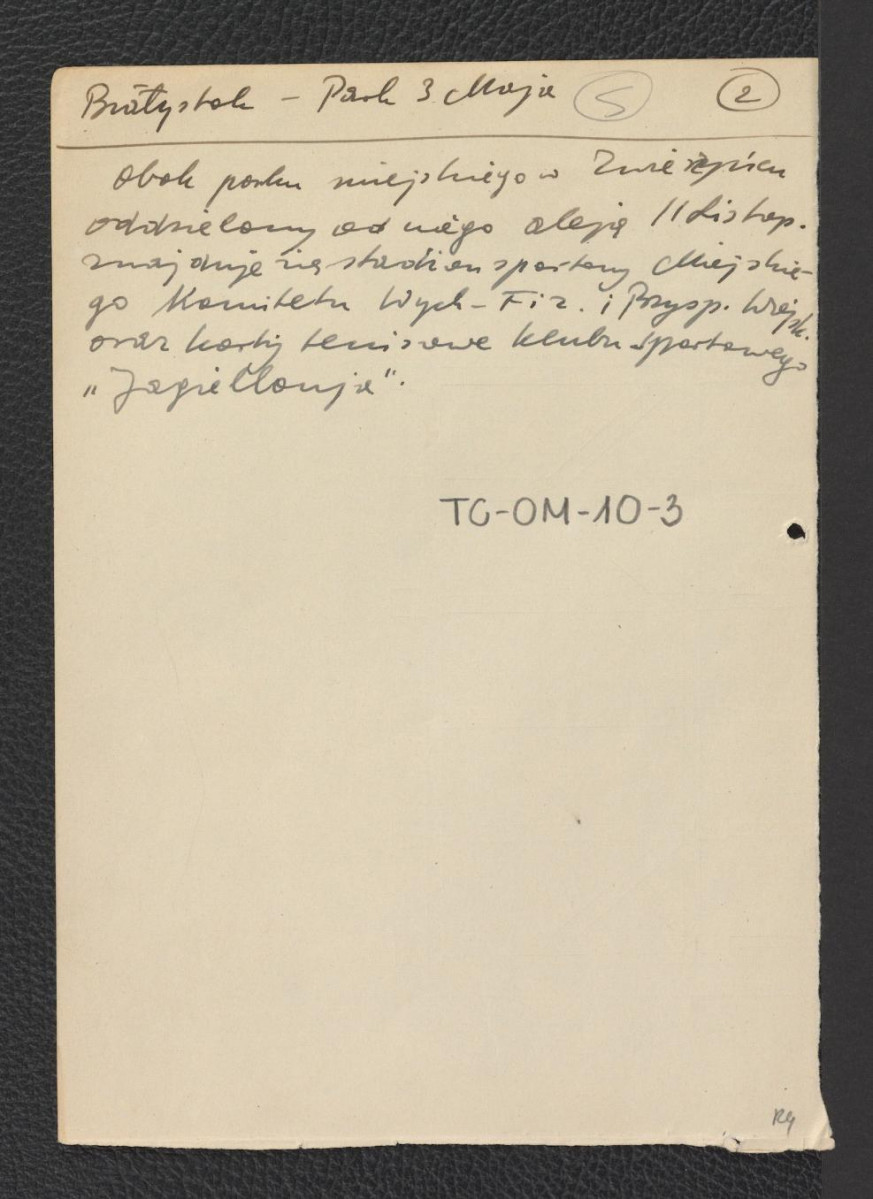 Białystok – Park 3 Maja 5 2
Obok parku miejskiego w Zwierzyńcu
oddzielony od niego aleją 11 Listop.
znajduje się stadion sportowy Miejskie-
go Komitetu Wych-Fiz. i Przysp. Wojsk.
oraz korty tenisowe klubu sportowego
„Jagiellonja".
TG-OM-10-3